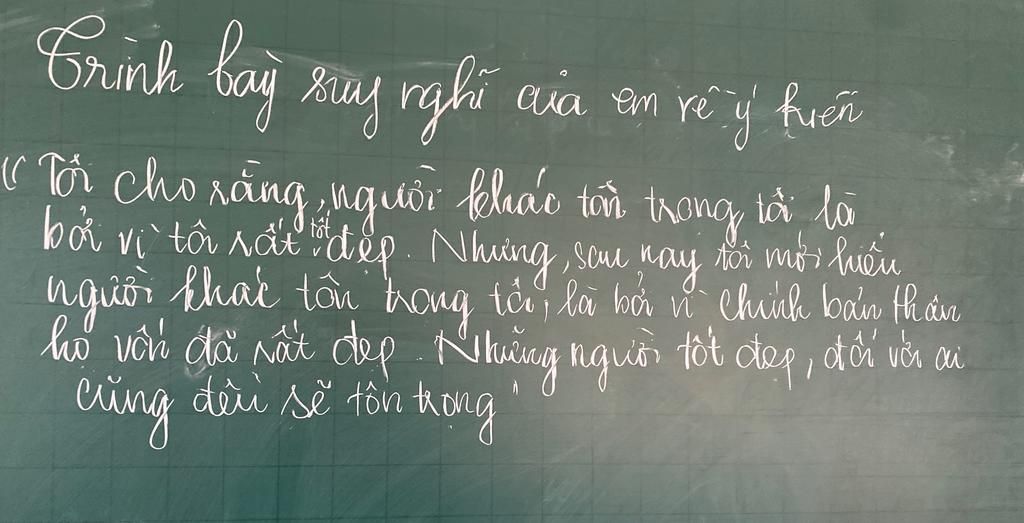 Trình bày suy nghĩ của em về ý kiến
"Tôi cho rằng, người khác tôn trọng tôi là
bởi vì tôi rất tốt đẹp. Nhưng, sau này tôi mới hiểu
người khác tôn trọng tôi, là bởi vì chính bản thân
họ vốn đã rất đẹp. Những người tốt đẹp, đối với ai
cũng đều sẽ tôn trọng"